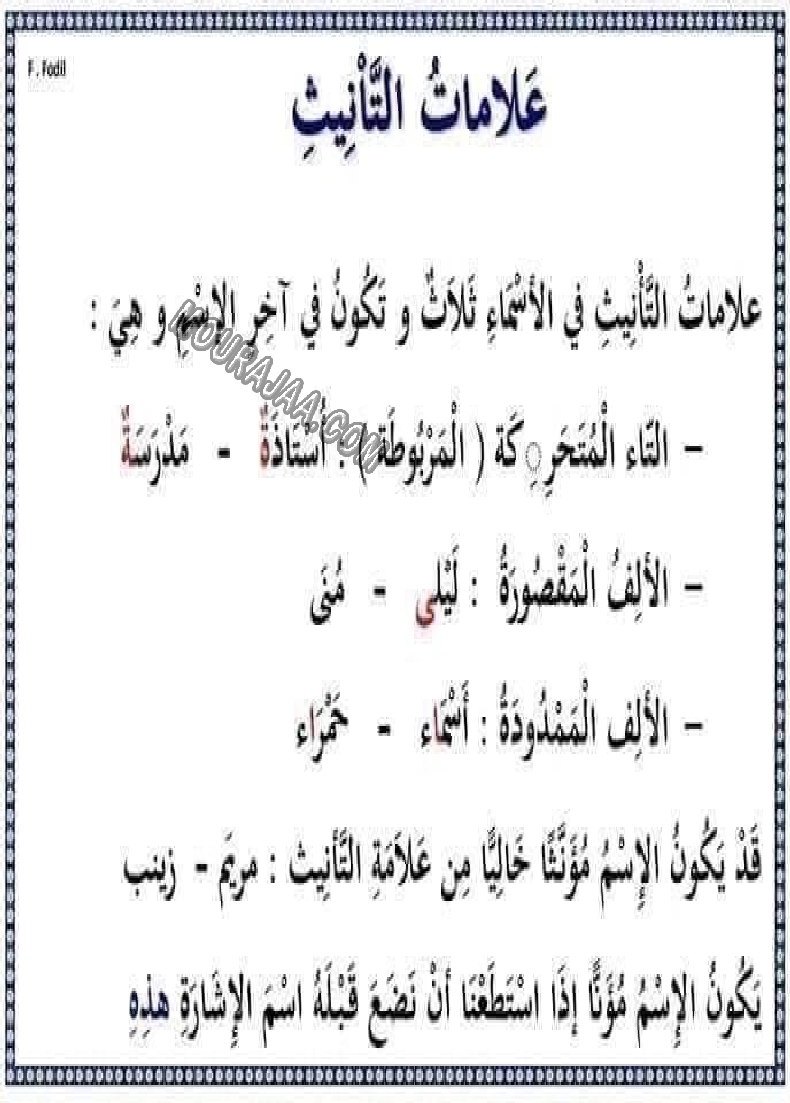 F . Fodil
عَلاماتُ التَّأْنِيثِ
علاماتُ التَّأْنِيثِ في الأَسْمَاءِ ثَلاَثٌ و تَكُونُ في آخِرِ الإِسْمِ و هِيَ :
– التّاء الْمُتَحَرِِكَة ( الْمَرْبُوطَة ) : أُسْتَاذَةٌ - مَدْرَسَةٌ
– الألِفُ الْمَقْصُورَةُ : لَيْلى - مُنَى
– الألِف الْمَمْدُودَةُ : أَسْمَاء - حَمْرَاء
قَدْ يَكُونُ الإِسْمُ مُؤَنَّثًا خَالِيًّا مِن عَلاَمَةِ التَّأنِيث : مريَم - زينب
يَكُونُ الإِسْمُ مُؤَنًّا إذَا اسْتَطَعْنَا أنْ نَضَعَ قَبْلَهُ اسْمَ الإِشَارَةِ هذِهِ
MOURAJAA.COM